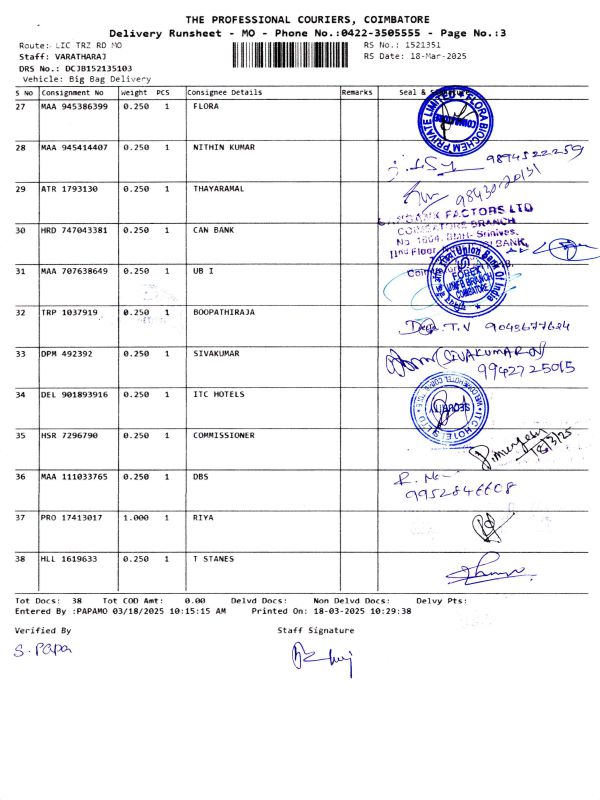 THE PROFESSIONAL COURIERS, COIMBATORE
Delivery Runsheet - MO - Phone No.:0422-3505555 - Page No.:3
Route: LIC TRZ RD MO
RS No.: 1521351
Staff: VARATHARAJ
RS Date: 18-Mar-2025
DRS No.: DCJB152135103
Vehicle: Big Bag Delivery
S NO Consignment No Weight PCS Consignee Details Remarks Seal &
27 MAA 945386399 0.250 1 FLORA
FLORA BIOCHEM PRIVATE LIMITED COIMBATORE
28 MAA 945414407 0.250 1 NITHIN KUMAR
9894522259
29 ATR 1793130 0.250 1 THAYARAMAL
9843020131
30 HRD 747043381 0.250 1 CAN BANK
FACTORS LTD
COIMBATORE BRANCH
31 MAA 707638649 0.250 1 UB I
Union Bank Of India
COIMBATORE
32 TRP 1037919 0.250 1 BOOPATHIRAJA
T.V
33 DPM 492392 0.250 1 SIVAKUMAR
(SIVAKUMAR)
9942725015
34 DEL 901893916 0.250 1 ITC HOTELS
ITC HOTELS LTD
SECURITY
35 HSR 7296790 0.250 1 COMMISSIONER
18/3/25
36 MAA 111033765 0.250 1 DBS
9952846608
37 PRO 17413017 1.000 1 RIYA
38 HLL 1619633 0.250 1 T STANES
Tot Docs: 38 Tot COD Amt: 0.00 Delvd Docs: Non Delvd Docs: Delvy Pts:
Entered By :PAPAMO 03/18/2025 10:15:15 AM Printed On: 18-03-2025 10:29:38
Verified By Staff Signature
S. Papa